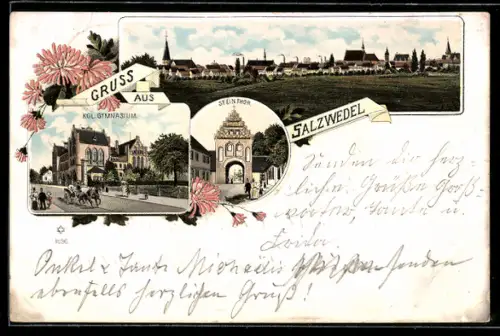 GRUSS
AUS
SALZWEDEL
KGL. GYMNASIUM.
STEINTHOR.
Senden die herz-
liche Grüße Groß-
Tante u.
Onkel & Tante Michaelis senden
ebenfalls herzlichen Gruß!